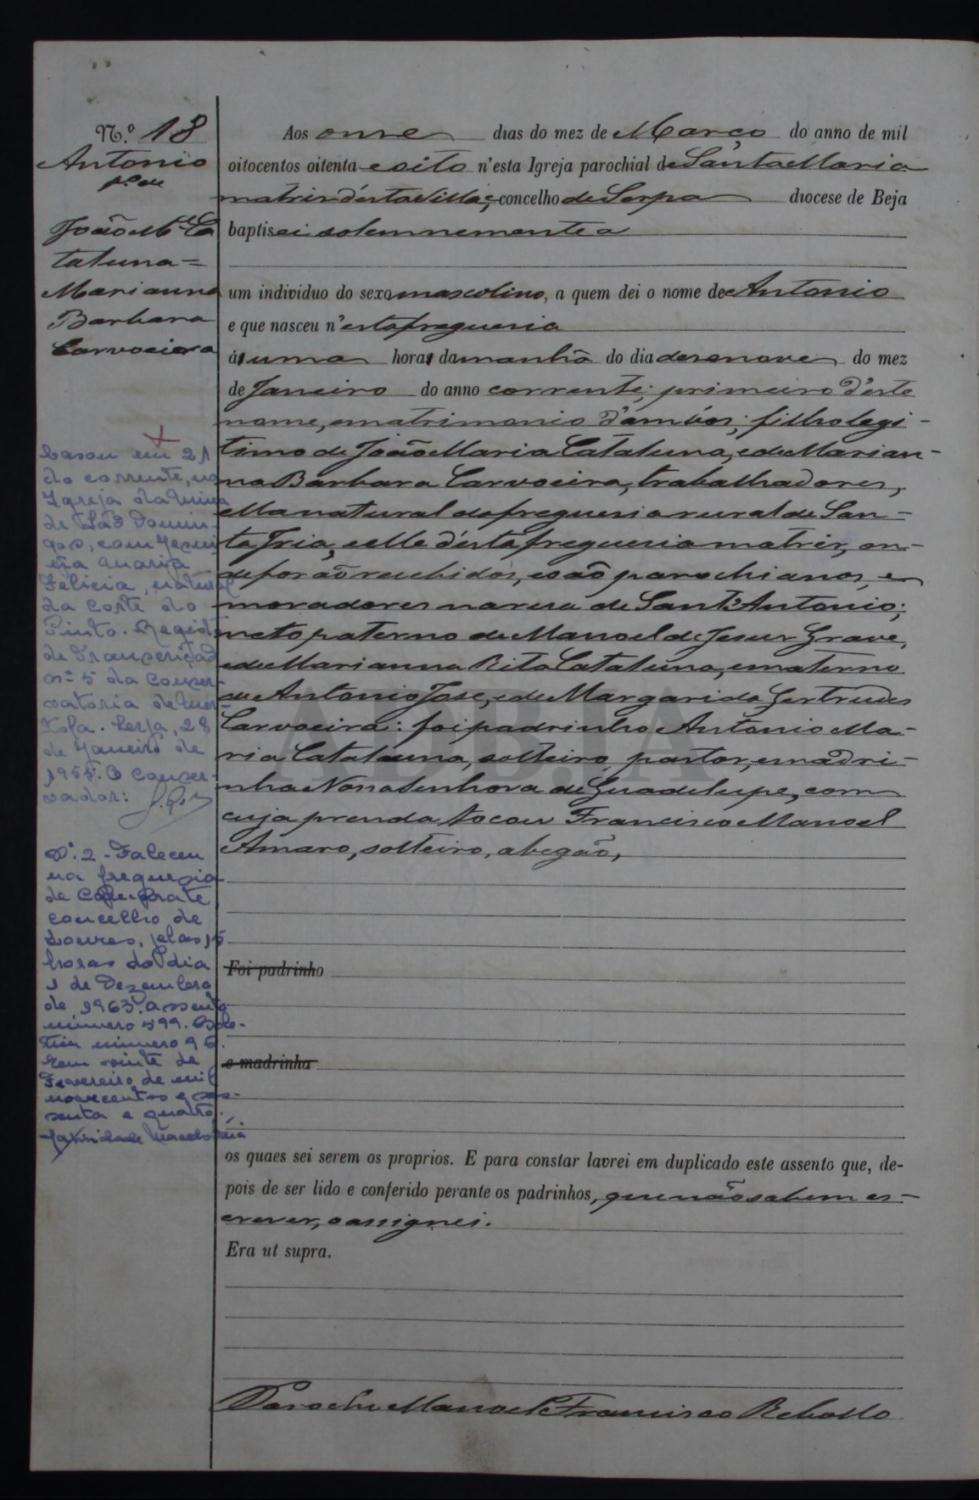 N.º 18
Antonio
fº de
João Mª Ca
taluna =
Marianna
Barbara
Carvoeira
Aos onze dias do mez de Março do anno de mil
oitocentos oitenta e oito n'esta Igreja parochial de Santa Maria
matriz d'esta Villa, e concelho de Serpa diocese de Beja
baptisei solemnemente a
um individuo do sexo masculino, a quem dei o nome de Antonio
e que nasceu n'esta freguesia
ás uma horas da manhã do dia desenove do mez
de Janeiro do anno corrente; primeiro d'este
nome, e matrimonio d'ambos; filho legi-
timo de João Maria Cataluna, e de Marian-
na Barbara Carvoeira, trabalhadores,
ella natural da freguesia rural de San-
ta Iria, e elle d'esta freguesia matriz, on-
de forão recebidos, e são parochianos, e
moradores na rua de Sant'Antonio;
neto paterno de Manoel de Jesus Grave,
e de Marianna Rita Cataluna, e materno
de Antonio José, e de Margarida Gertrudes
Carvoeira: foi padrinho Antonio Ma-
ria Cataluna, solteiro, pastor, e madri-
nha Nossa Senhora de Guadelupe, com
cuja prenda tocou Francisco Manoel
Amaro, solteiro, abegão,
Foi padrinho
e madrinha
os quaes sei serem os proprios. E para constar lavrei em duplicado este assento que, de-
pois de ser lido e conferido perante os padrinhos, que não sabem es-
crever, o assignei.
Era ut supra.
O Parocho Manoel Francisco Rebollo
Casou em 21
do corrente, na
Igreja da Mina
de São Domin-
gos, com
Maria
Felicia, natural
da Corte do
Pinto. Registo
de Transcrição
nº 5 da Conser-
vatória de Mér-
tola. Serpa, 28
de Janeiro de
O Conser-
vador:
Nº 2 - Faleceu
na freguesia
de Camarate
concelho de
Loures, pelas 15
horas do dia
1 de Dezembro
de 1963. Assento
número 599. Bole-
tim número 96.
Em vinte de
Fevereiro de mil
novecentos e ses-
senta e quatro.
ADBJA